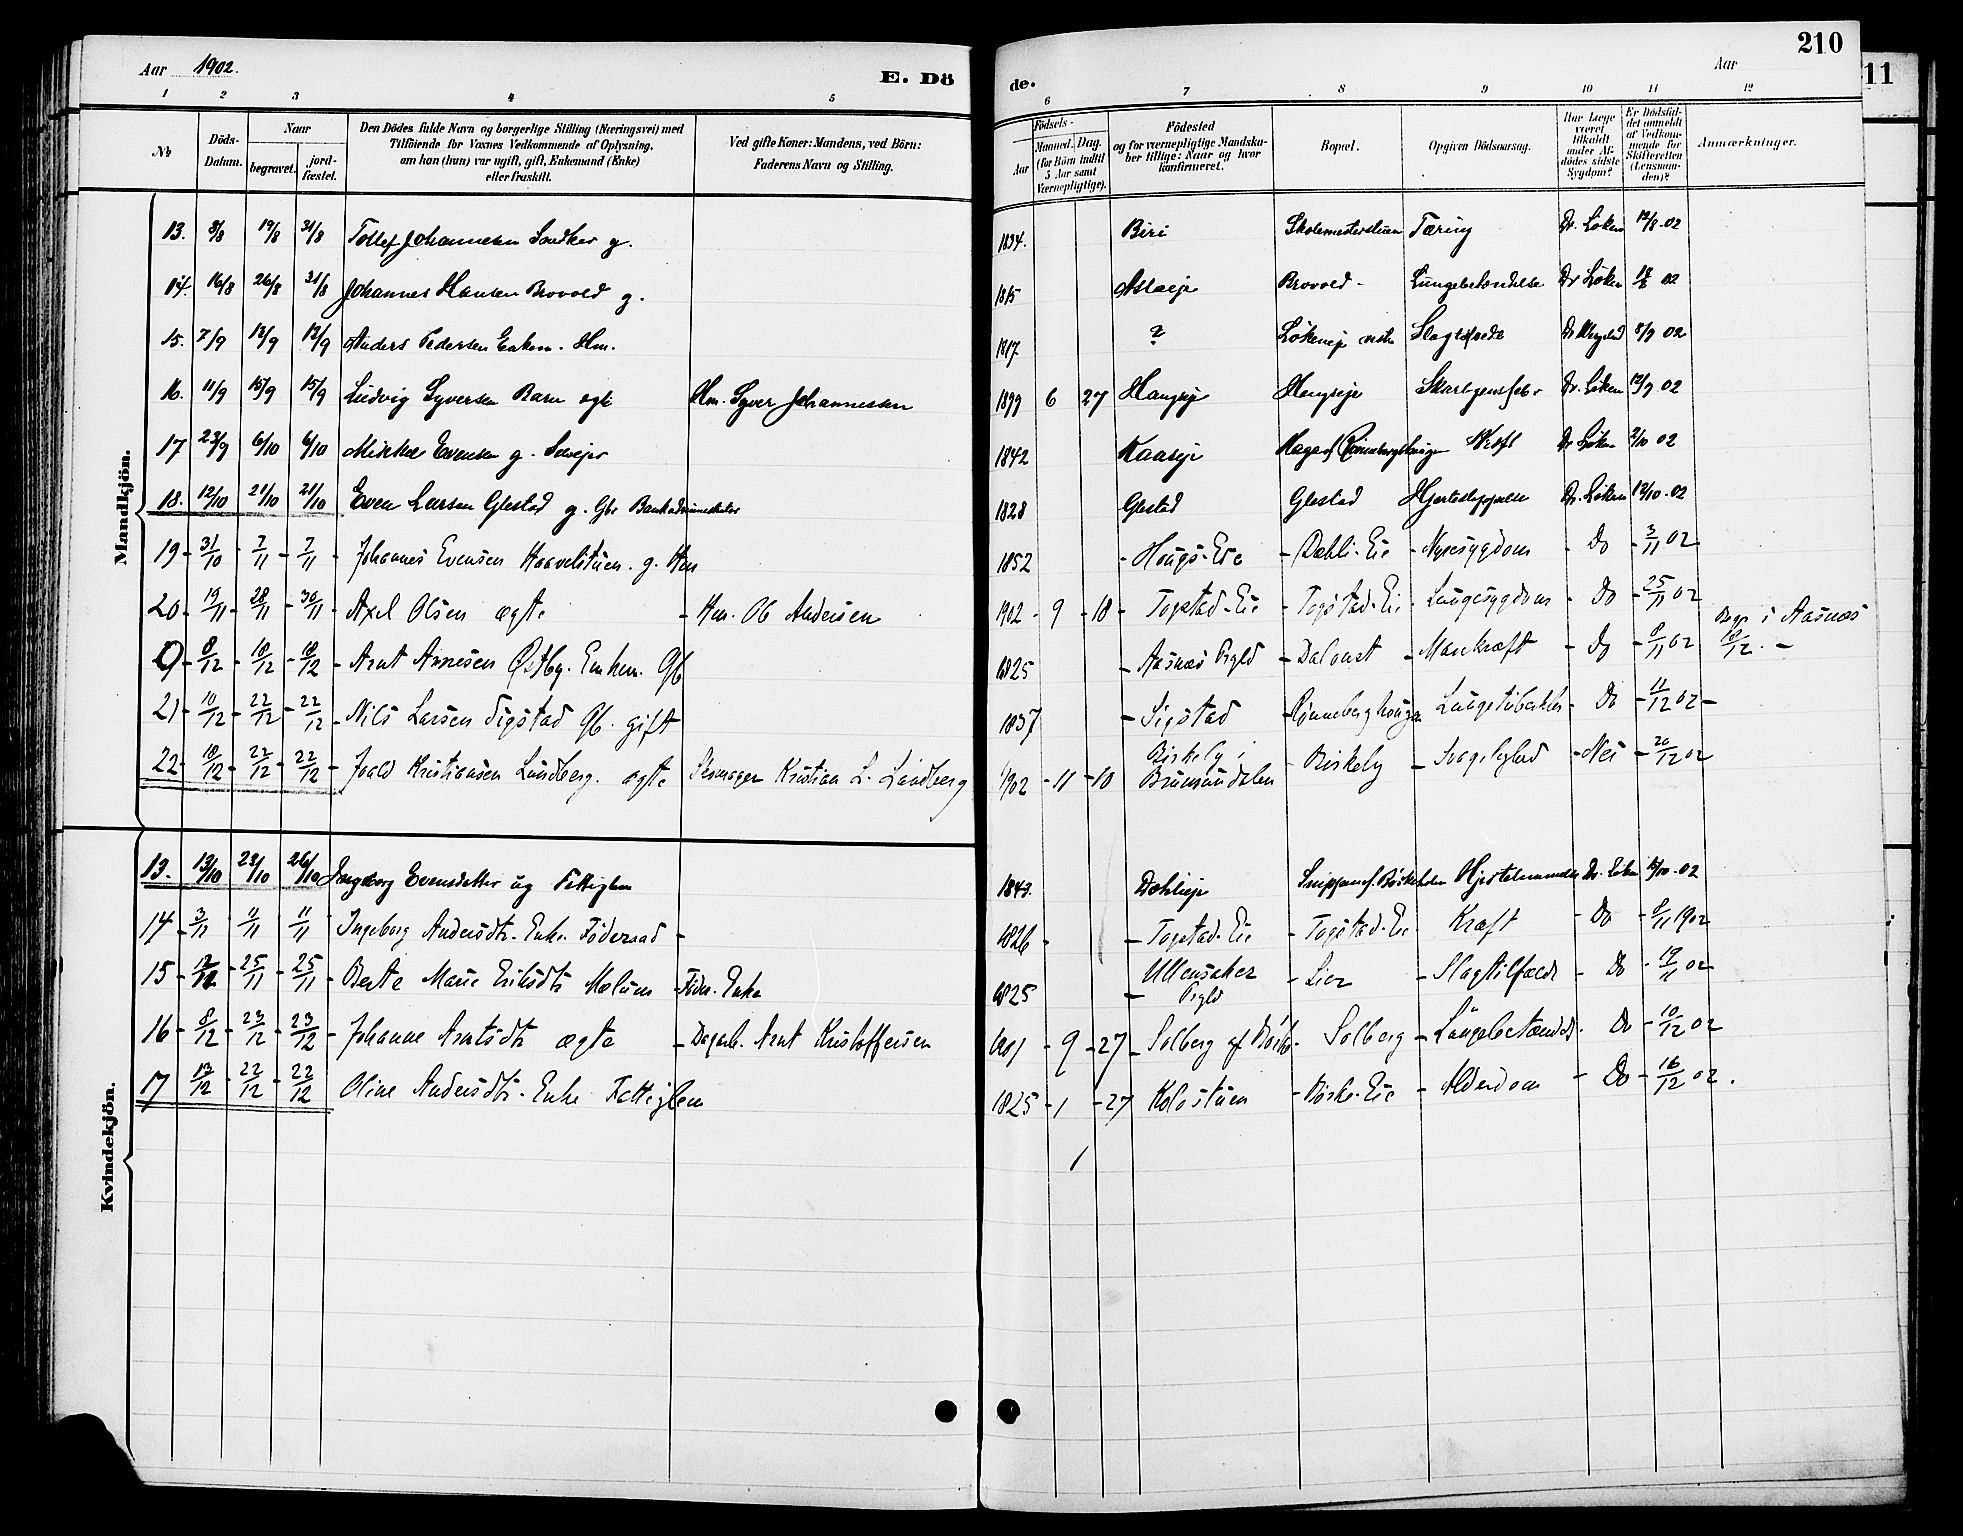 Aar 1902. E. Dö
de. Aar 210
11
1 2 3 4 5
6 7 8 9 10 11 12
No
Döds-Datum.
Naar
begravet.
jord-fæstet.
Den Dödes fulde Navn og borgerlige Stilling (Næringsvei) med
Tilföiende for Voxnes Vedkommende af Oplysning,
om han (hun) var ugift, gift, Enkemand (Enke)
eller fraskilt.
Ved gifte Koner: Mandens, ved Börn:
Faderens Navn og Stilling.
Födsels-
Aar
Maaned. Dag.
(for Börn indtil
5 Aar samt
Værnepligtige).
Födested
og for værnepligtige Mandska-
ber tillige: Naar og hvor
konfirmeret.
Bopæl.
Opgiven Dödsaarsag.
Har Læge
været
tilkaldt
under Af-
dödes sidste
Sygdom?
Er Dödsfal-
det anmeldt
af Vedkom-
mende for
Skifteretten
(Lensman-
den)?
Anmærkninger.
Mandkjön.
13. 8/8 19/8 31/8 Tollef Johannesen g. 1834. Biri Skolemesterstuen Tæring Dr. Löken 12/8 02
14. 16/8 26/8 31/8 Johannes Hansen Brovold g. 1815 Brovold Lungebetændelse Dr Löken 18/8 02
15. 7/9 13/9 13/9 Anders Pedersen Enkem. Hm. 1817 ? Lökeneje Dr 8/9 02
16. 11/9 15/9 15/9 Ludvig Syversen Barn ægte Hm. Syver Johannessen 1899 6 27 Haugseje Haugseje Skarlagensfeber Dr. Löken 12/9 02
17 23/9 6/10 6/10 Mikkel Evensen g. 1842 Kaaseje Dr Löken 2/10 02
18. 12/10 21/10 21/10 Even Larsen Glestad g. Gbr Bankadministrator 1828 Glestad Glestad Hjertelammelse Dr. Löken 12/10 02
19 31/10 7/11 7/11 Johannes Evensen g. Hm 1852 Haugs-Eie Dæhli-Eie Nyresygdom Do 3/11 02
20 19/11 28/11 30/11 Axel Olsen ægte Hm. Ob Andersen 1902 9 18 Togstad-Eie Togstad-Eie Lungesygdom Do 25/11 02
9 8/12 18/12 18/12 Arnt Arnesen Østby. Enkem. Gb 1825 Aasnæs Prgld Do 8/11 02 Begr. i Aasnæs 18/12
21 11/12 22/12 22/12 Nils Larsen Sigstad Gb. gift 1837 Sigstad Rønneberghaugen Lungetuberkler Do 11/12 02
22 18/12 22/12 22/12 Joald Kristiansen Lundberg. ægte Skomager Kristian L. Lundberg 1902 11 10 Birkely i Brumunddalen Birkely Svagelighed Nei 20/12 02
Kvindekjön.
13. 13/10 23/10 26/10 Ingeborg Evensdatter ug Fattiglem 1843. Dæhlieje Dr. Löken 15/10 02
14 3/11 11/11 11/11 Ingeborg Andersdtr. Enke. Föderaad 1826 Togstad-Eie Togstad-Eie Kræft Do 8/11 1902
15 25/11 25/11 Berte Marie Eriksdtr Mælum Föder. Enke 1825 Ullensaker Prgld Lier Slagtilfælde Do 18/11 02
16 8/12 23/12 23/12 Johanne Arntsdtr ægte Dagarb. Arnt Kristoffersen 1901 9 27 Solberg af Börke Solberg Lungebetændels. Do 10/12 02
17 13/12 22/12 22/12 Oline Andersdtr. Enke Fattiglem 1825 1 27 Kolostuen Börke-Eie Alderdom Do 16/12 02.